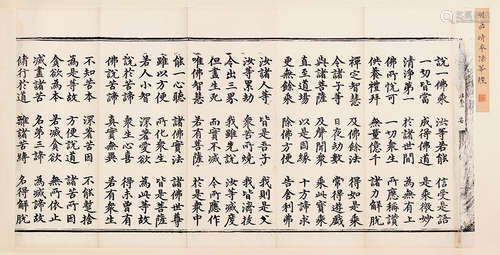 說一佛乘 汝等若能 信受是語
一切皆當 成得佛道 是乘微妙
清淨第一 於諸世間 為無有上
佛所悅可 一切衆生 所應稱讚
供養禮拜 無量億千 諸力解脫
禪定智慧 及佛餘法 得如是乘
令諸子等 日夜劫數 常得遊戲
與諸菩薩 及聲聞衆 乘此寶乘
直至道場 以是因緣 十方諦求
更無餘乘 除佛方便 告舍利弗
汝諸人等 皆是吾子 我則是父
汝等累劫 衆苦所燒 我皆濟拔
令出三界 我雖先說 汝等滅度
但盡生死 而實不滅 今所應作
唯佛智慧 若有菩薩 於是衆中
能一心聽 諸佛實法 諸佛世尊
雖以方便 所化衆生 皆是菩薩
若人小智 深著愛欲 為此等故
說於苦諦 衆生心喜 得未曾有
佛說苦諦 真實無異 若有衆生
不知苦本 深著苦因 不能暫捨
為是等故 方便說道 諸苦所因
貪欲為本 若滅貪欲 無所依止
滅盡諸苦 名第三諦 為滅諦故
脩行於道 離諸苦縛 名得解脫